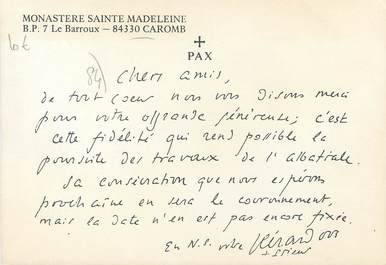 MONASTERE SAINTE MADELEINE
B.P. 7 Le Barroux — 84330 CAROMB
PAX
84)
Chers amis,
de tout coeur nous vous disons merci
pour votre offrande généreuse; c'est
cette fidélité qui rend possible la
poursuite des travaux de l'abbatiale.
Sa consécration que nous espérons
prochaine en sera le couronnement,
mais la date n'en est pas encore fixée.
En N.S. votre Gérard OSB